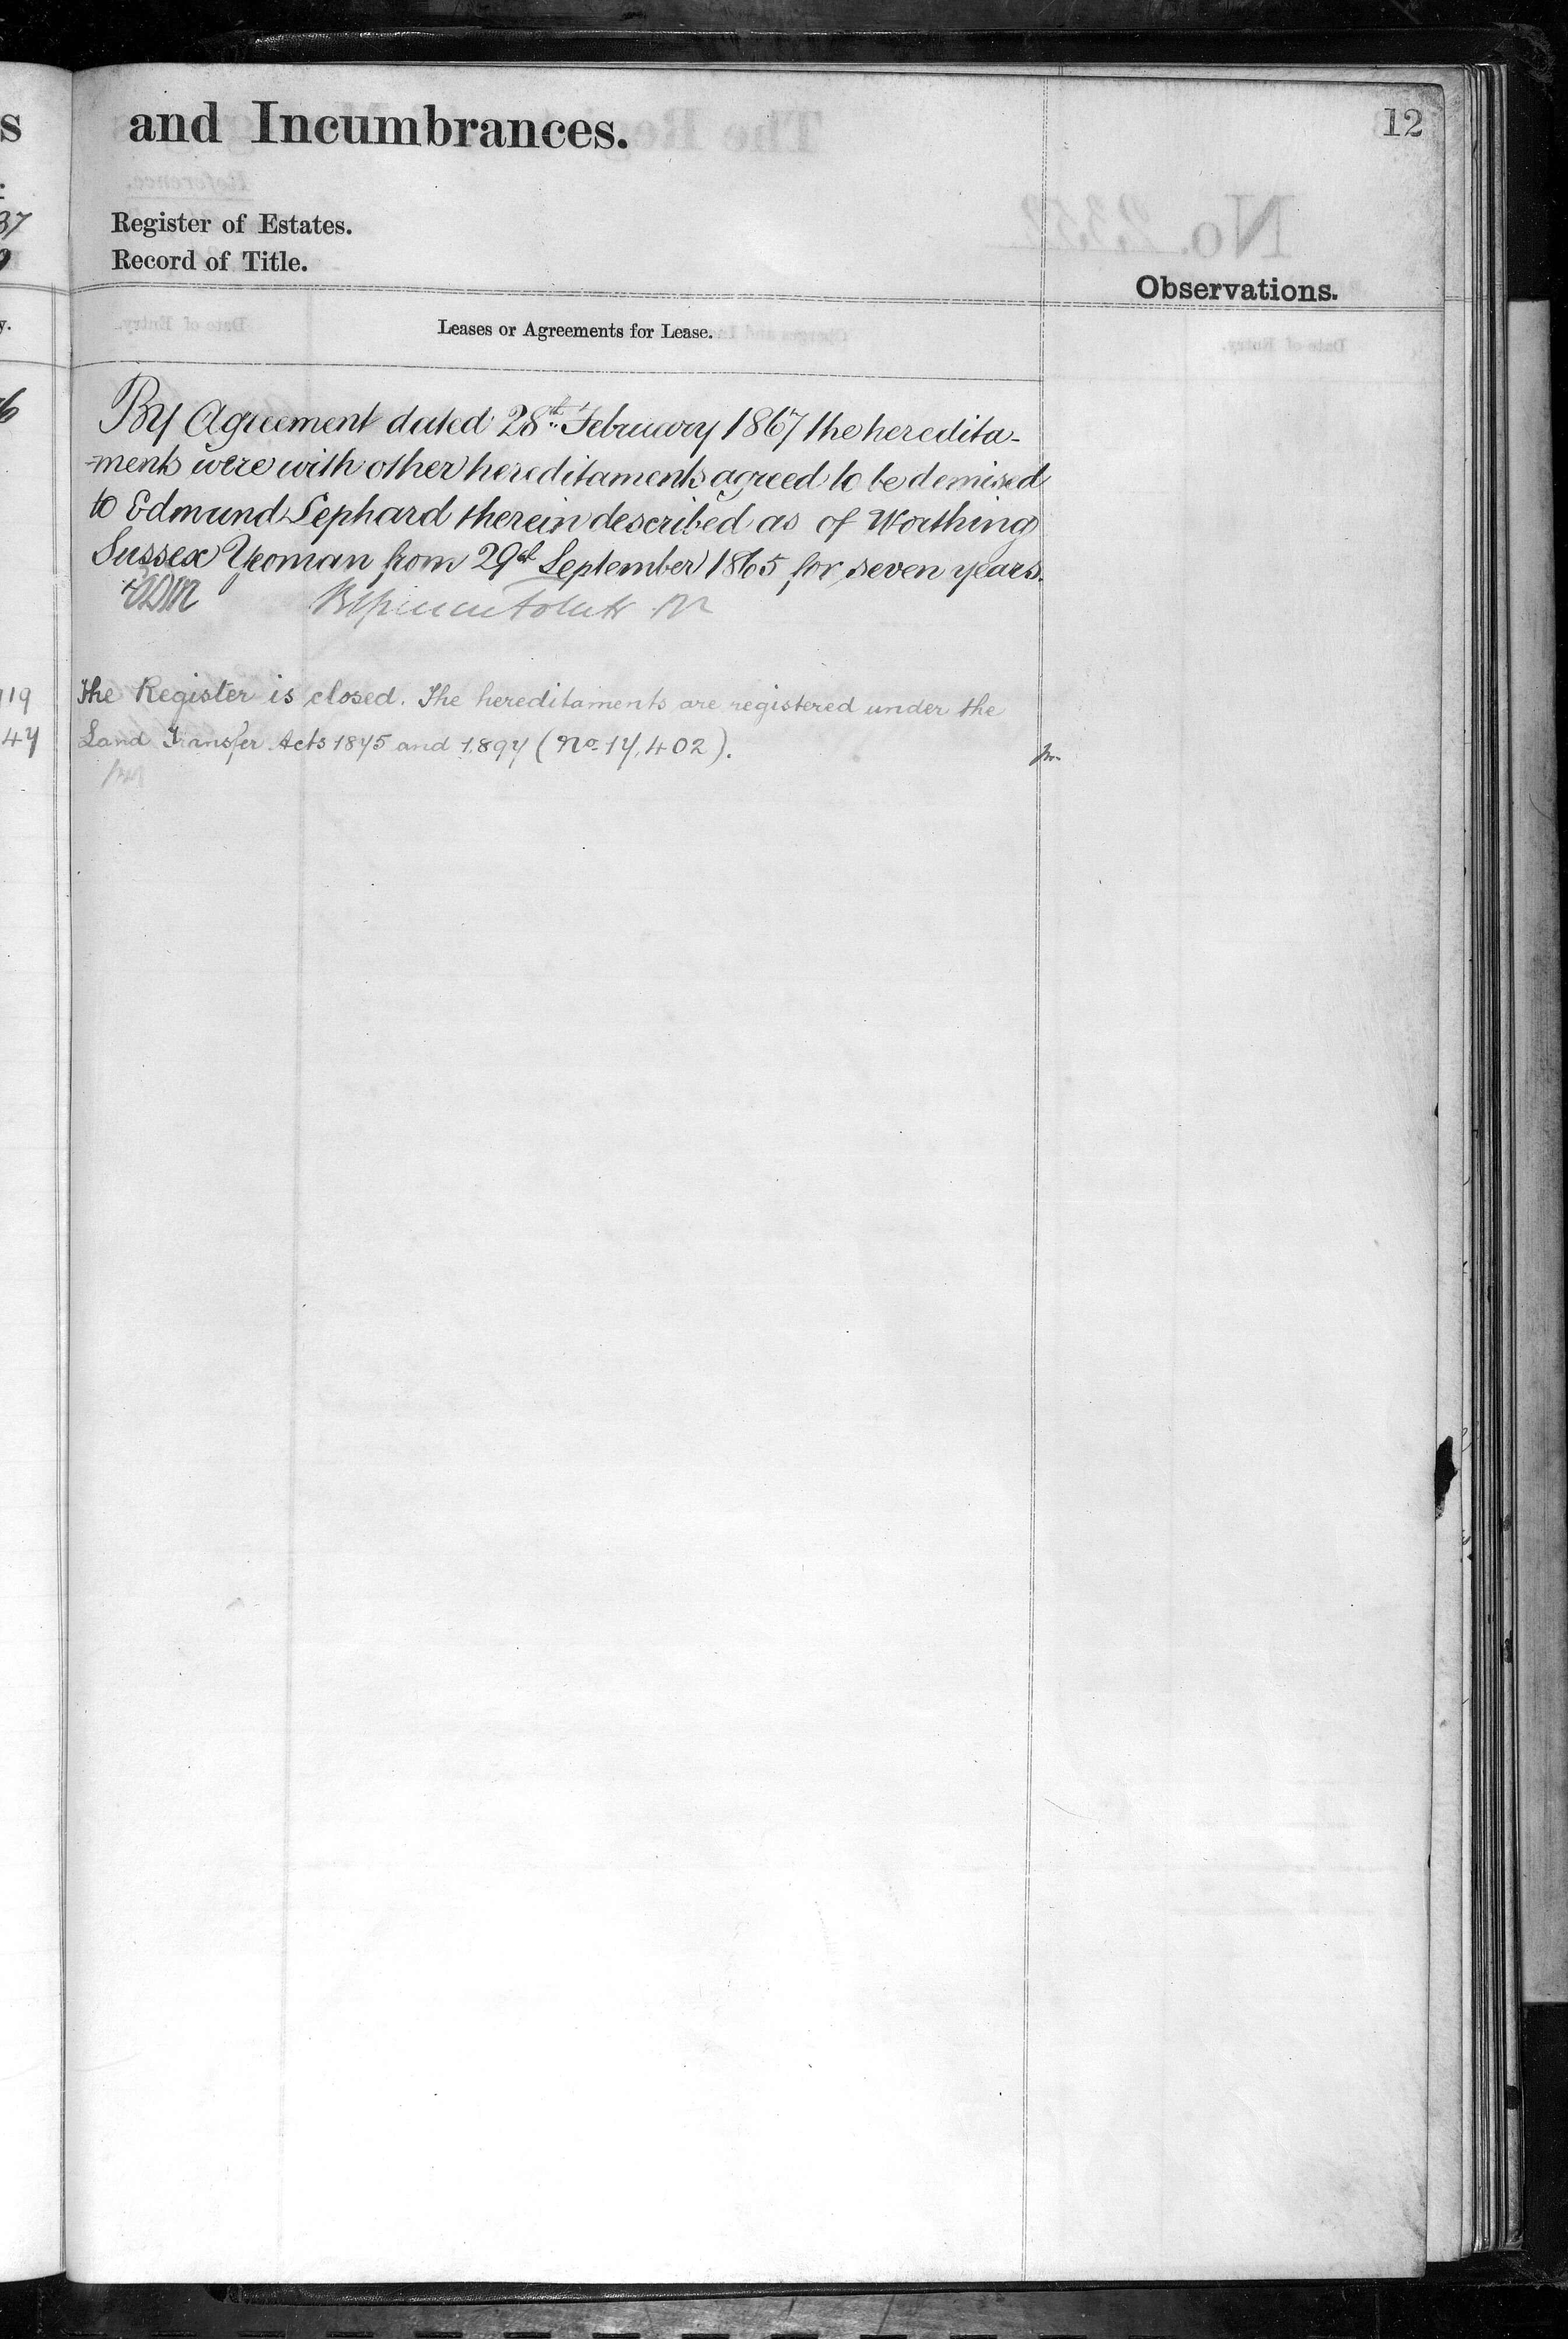 and Incumbrances.
12
Register of Estates.
Record of Title.
Observations.
Leases or Agreements for Lease.
By Agreement dated 28th February 1867 the heredita-
-ments were with other hereditaments agreed to be demised
to Edmund Lephard therein described as of Worthing
Sussex Yeoman from 29th September 1865 for seven years.
The Register is closed. The hereditaments are registered under the
Land Transfer Acts 1875 and 1897 (No. 17,402).
s
37
y.
6
119
47